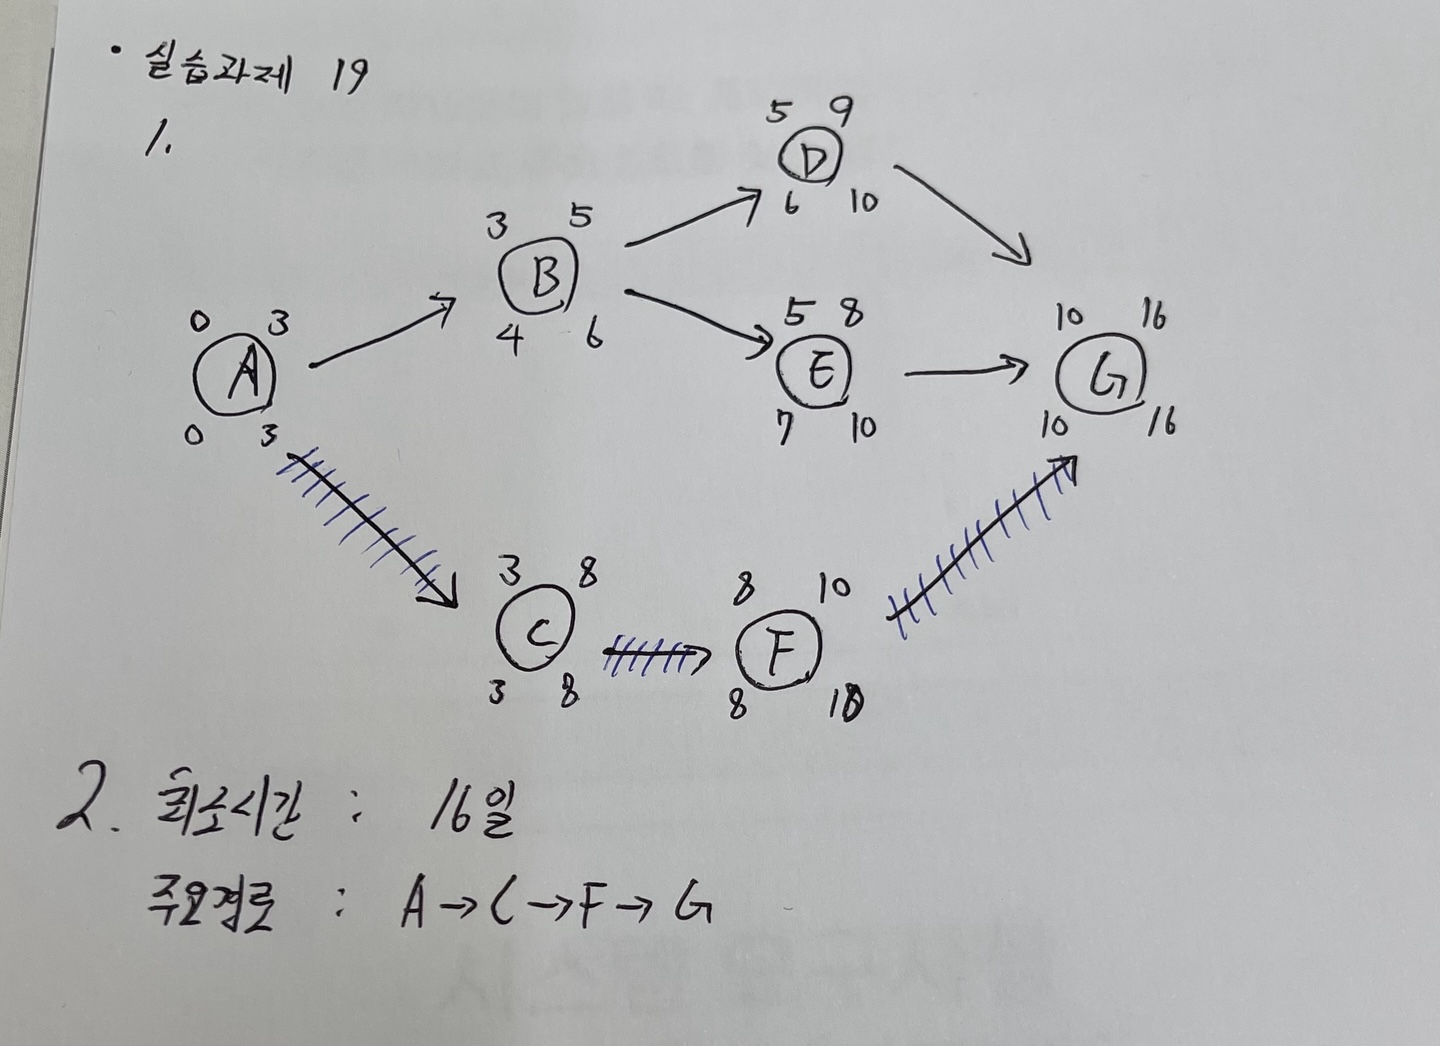 • 실습과제 19
1.
5 9
D
6 10
3 5
B
4 6
0 3
A
0 3
5 8
E
7 10
10 16
G
10 16
3 8
C
3 8
8 10
F
8 10
2. 최소시간 : 16일
주요경로 : A→C→F→G